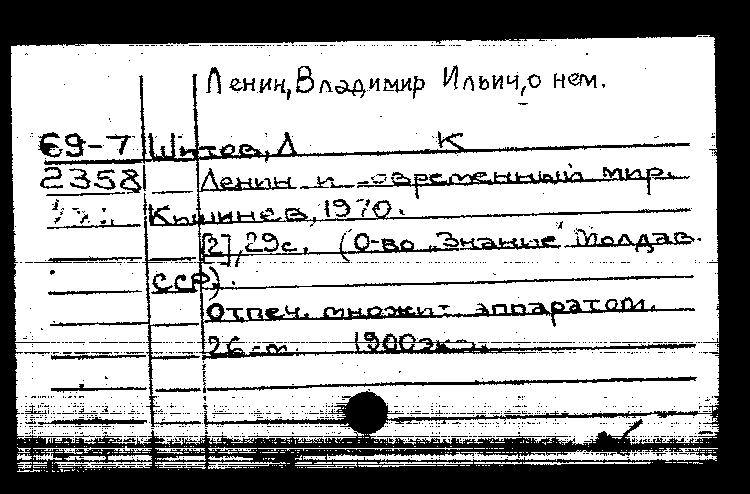 Ленин, Владимир Ильич, о нем.
69-7 Шитов, Л К
2358 Ленин и современный мир.
Кишинев, 1970.
[2], 29с. (О-во "Знание" Молдав.
ССР).
Отпеч. множит. аппаратом.
26 см. 1900 экз.